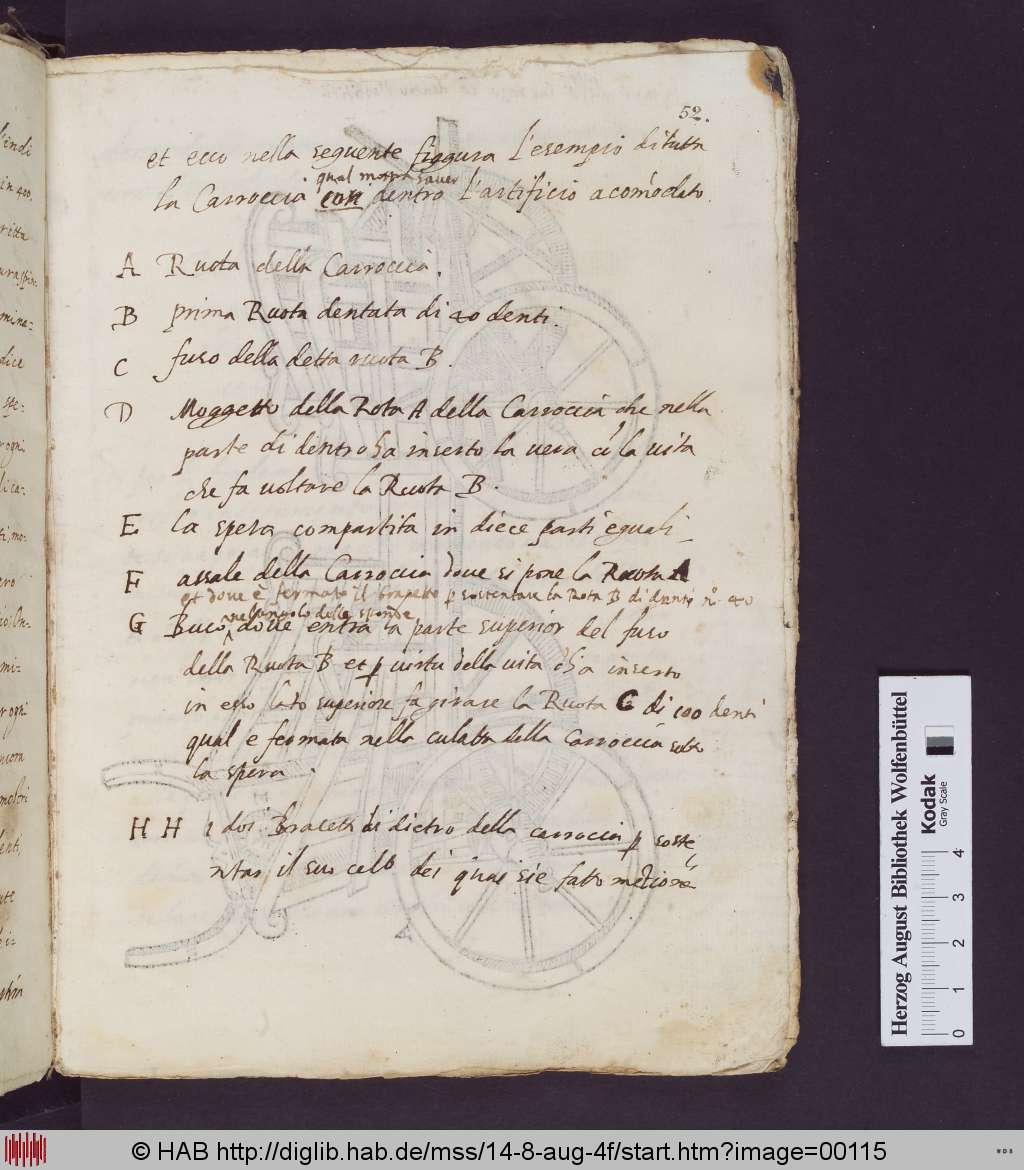 52.
et ecco nella seguente figgura l'esempio di tutta
la Carroccia con dentro l'artificio acomodato.
A Ruota della Carroccia.
B prima Ruota dentata di 40 denti.
C fuso della detta ruota B.
D Moggetto della Rota A della Carroccia che nella
parte di dentro ha inserto la vera cō la vita
che fa voltare la Ruota B.
E la spera compartita in diece parti eguali
F assale della Carroccia dove si pone la Ruota A
et dove è fermato il brapetto p sostentare la Rota B di denti nº 40
nel angolo delle sponde
G Buco dove entra la parte superior del fuso
della Ruota B et p virtu della vita ch'ha inserto
in esso lato superiore fa girare la Ruota C di 100 denti
qual e fermata nella culatta della Carroccia sotto
la spera.
H H i doi Braceti di dietro della carroccia p soste
ntar il suo celo dei quai si è fatto metione
A
Herzog August Bibliothek Wolfenbüttel
Kodak
Gray Scale
0 1 2 3 4
© HAB http://diglib.hab.de/mss/14-8-aug-4f/start.htm?image=00115